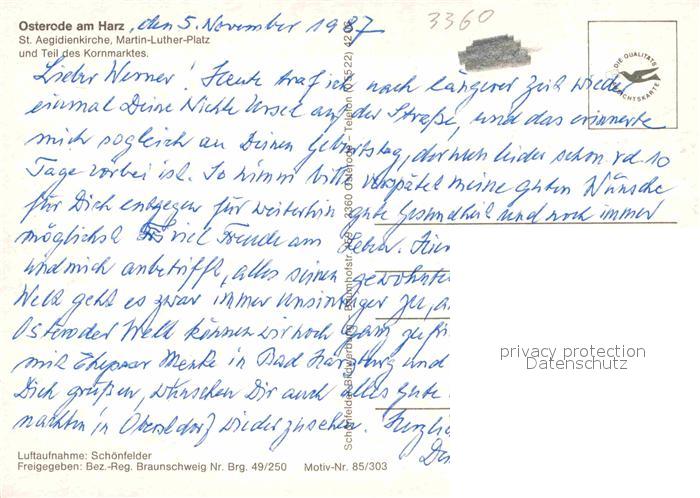 Osterode am Harz, den 5. November 1987
3360
St. Aegidienkirche, Martin-Luther-Platz
und Teil des Kornmarktes.
DIE QUALITÄTS
Lieber Werner! Heute traf ich nach längerer Zeit wieder
einmal Deine Nichte Ursel auf der Straße, und das erinnerte
mich sogleich an Deinen Geburtstag, der nun leider schon rd. 10
Tage vorbei ist. So nimm bitte verspätet meine guten Wünsche
für Dich entgegen für weiterhin gute Gesundheit und noch immer
möglichst viel Freude am Leben. Hier
und mich anbetrifft, alles seinen gewohnten
Welt geht es zwar immer unsinniger zu, a
Osteroder Welt können wir noch ganz zufri
mit Ehepaar Menke in Bad Harzburg und
Dich grüßen, wünschen Dir auch alles Gute
nachten in Oberstdorf wiederzusehen. Herzlic
Schönfelder Bildwerbung, 3360 Osterode, Telefon (05522) 42 06
privacy protection
Datenschutz
Luftaufnahme: Schönfelder
Freigegeben: Bez.-Reg. Braunschweig Nr. Brg. 49/250 Motiv-Nr. 85/303